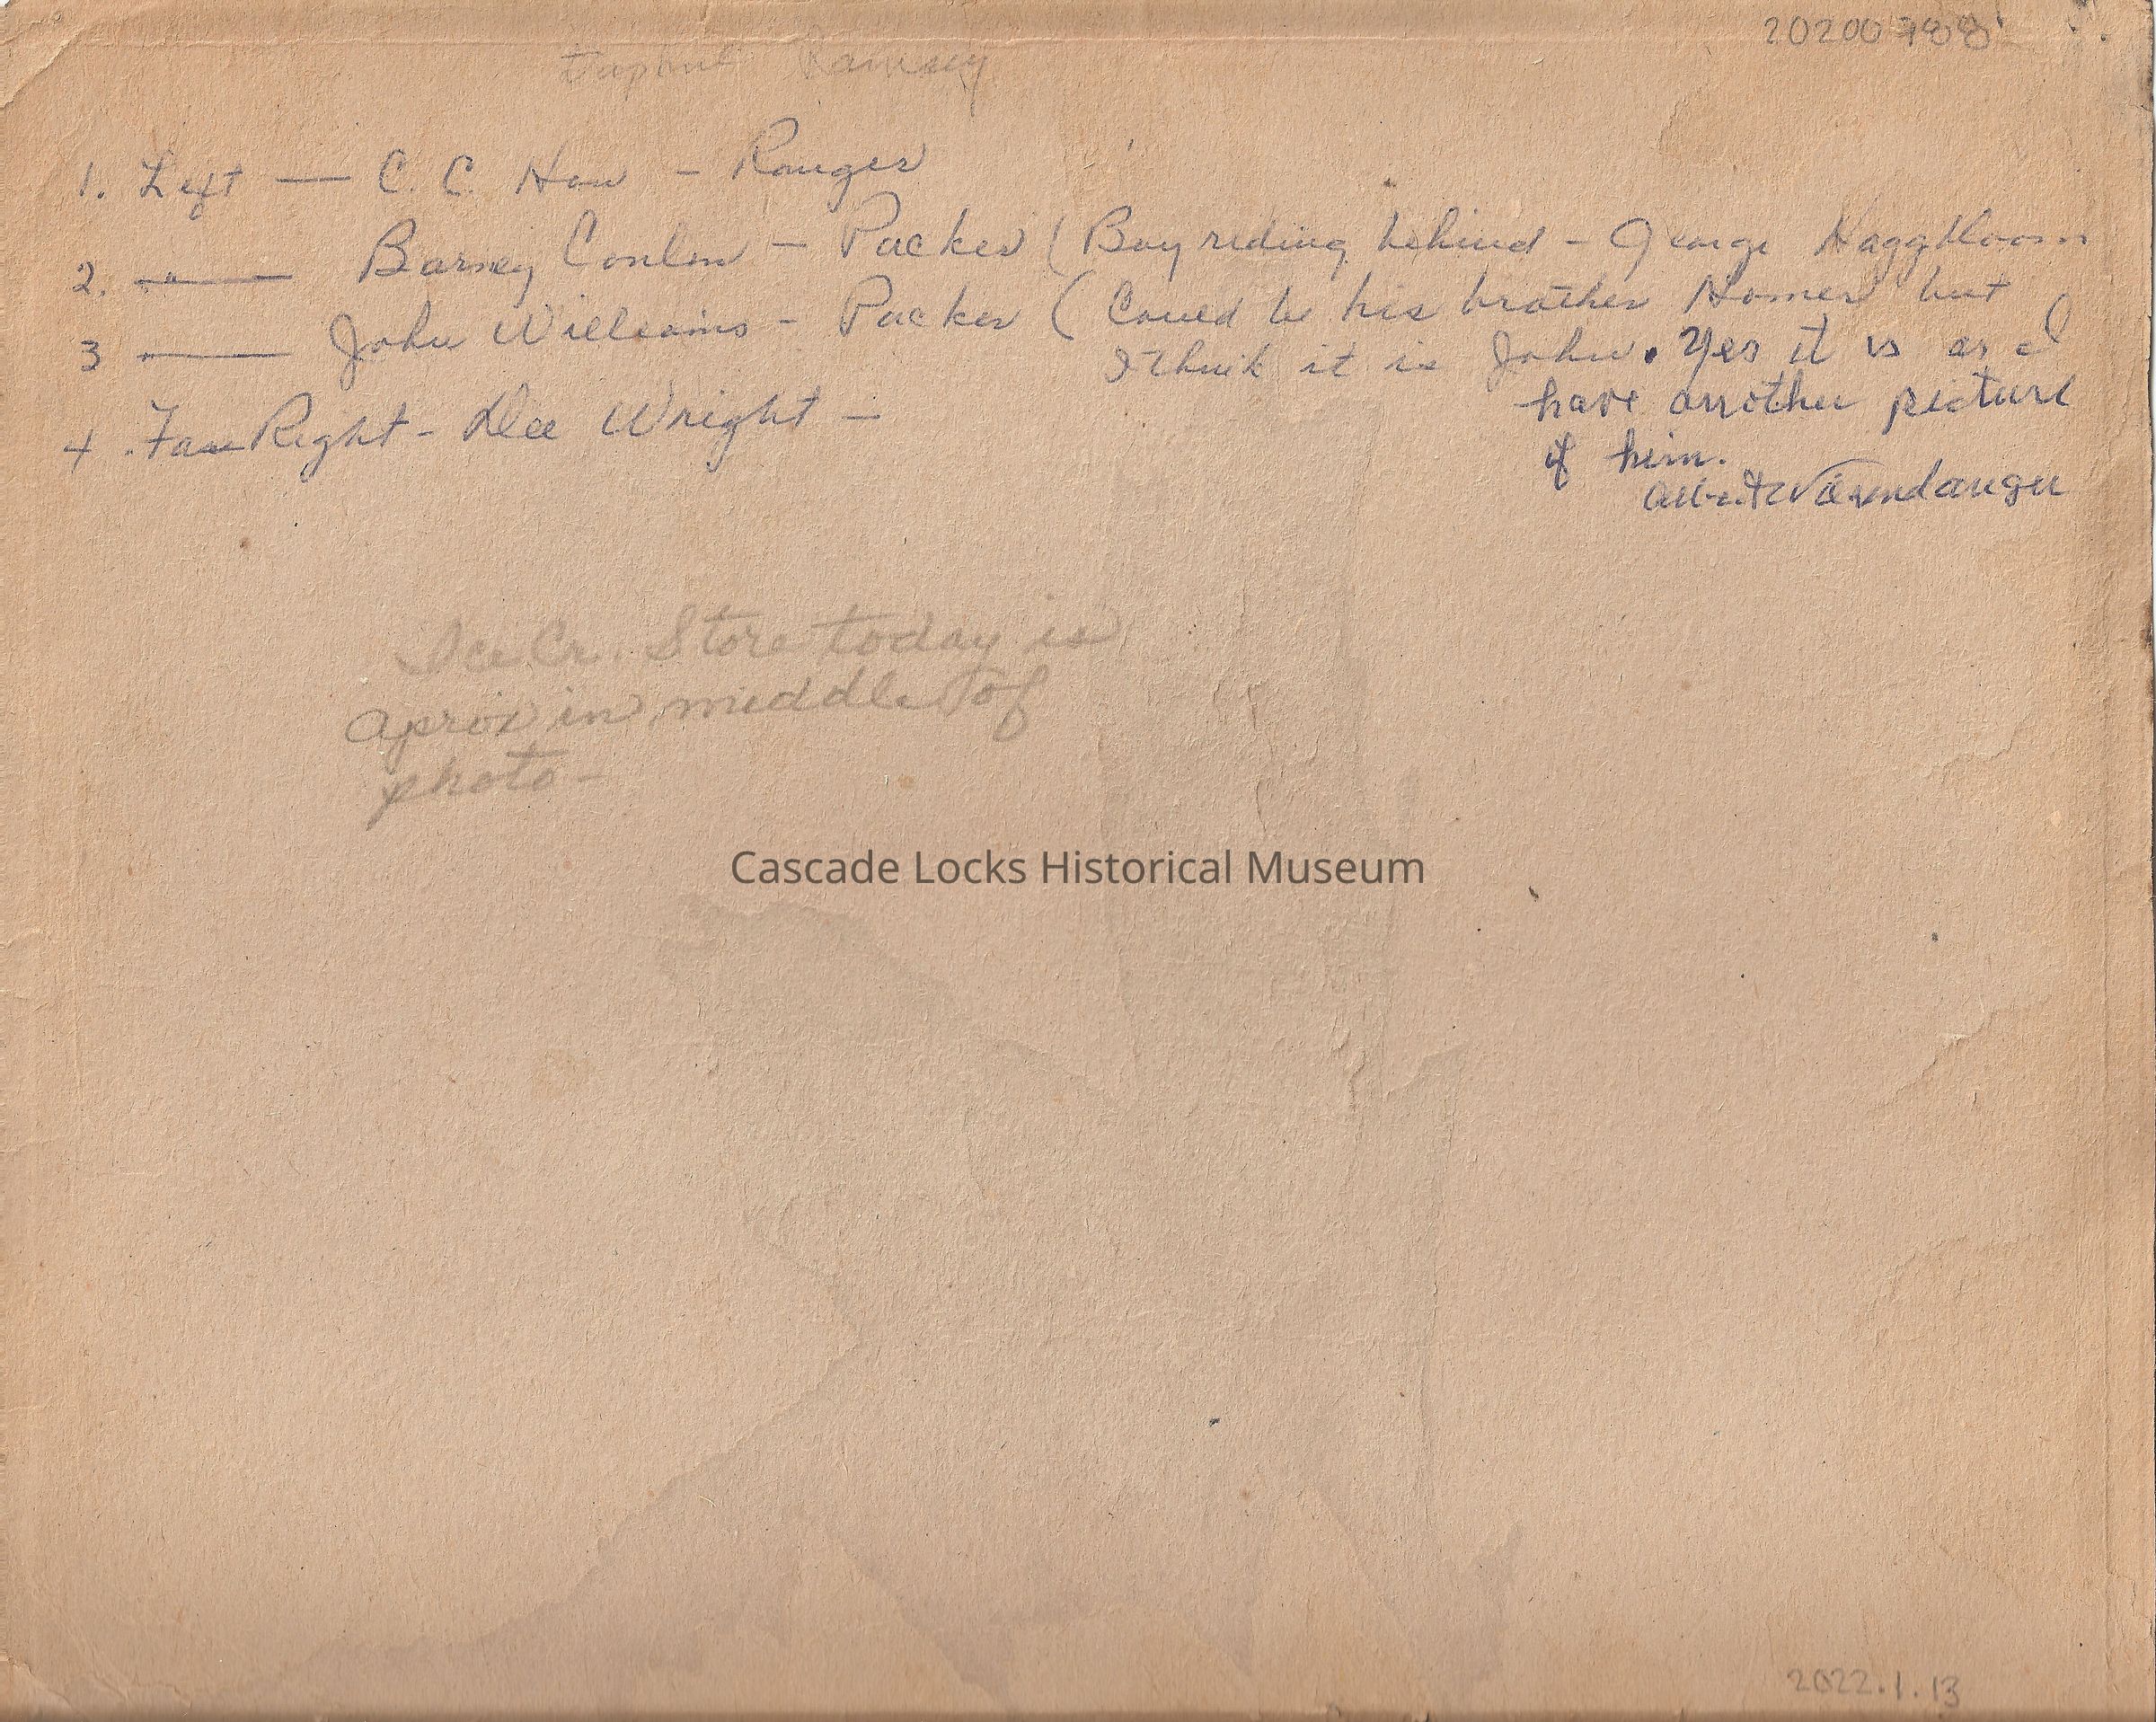 20200788
Daphne Ramsey
1. Left — C. C. Hon - Ranger
2. —"— Barney Conlon - Packer ( Boy riding behind - George Haggbloom
3 —— John Williams - Packer ( Could be his brother Homer but
I think it is John. Yes it is as I
have another picture
of him.
Albert Wiesendanger
4. Far Right - Dee Wright —
Ice Cr. Store today is
aprox in middle of
photo -
Cascade Locks Historical Museum
2022.1.13